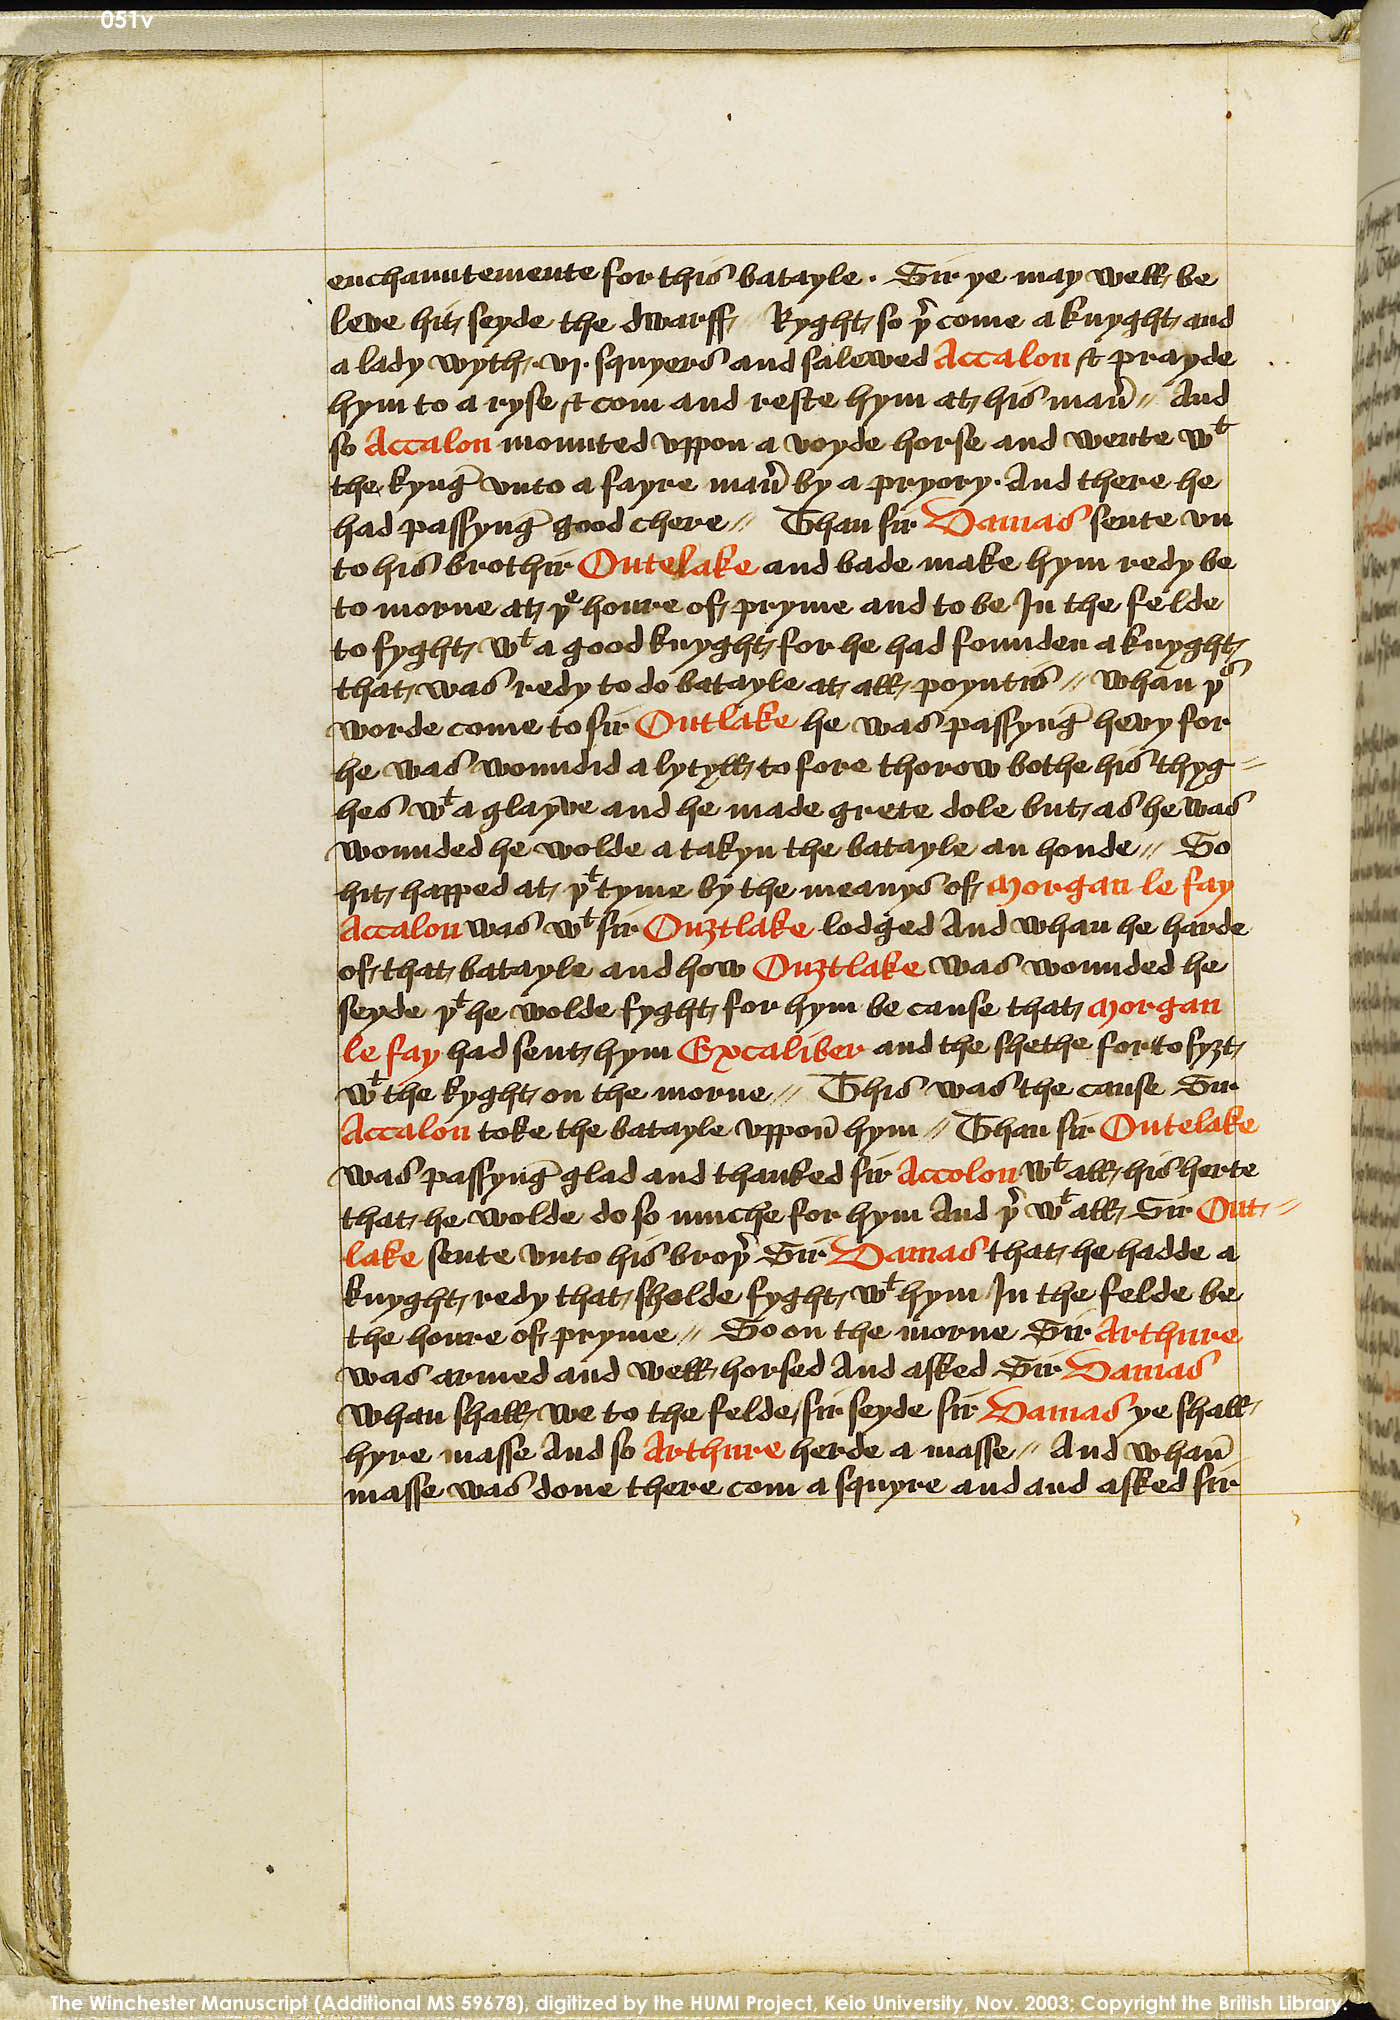 051v
enchauntemente for this batayle · Sir ye may well be
leve hit seyde the dwarff Ryght so þr come a knyght and
a lady wyth · vj · squyers and salewed Accalon & prayde
hym to a ryse & com and reste hym at his man̄r // And
so Accalon mounted vppon a voyde horse and wente wt
the kynḡ vnto a fayre man̄r by a pryory · And there he
had passynḡ good chere // Than sir Damas sente vn
to his brothir Outelake and bade make hym redy be
to morne at þe houre of pryme and to be In the felde
to fyght wt a good knyght for he had founden a knyght
that was redy to do batayle at all poyntis // Whan þs
worde come to sir Outlake he was passynḡ hevy for
he was woundid a lytyll to fore thorow bothe his thyg //
hes wt a glayve and he made grete dole but as he was
wounded he wolde a takyn the batayle an honde // So
hit happed at þt tyme by the meanys of Morgan le fay
Accalon was wt sir Ouztlake lodged And whan he harde
of that batayle and how Ouztlake was wounded he
seyde þt he wolde fyght for hym be cause that Morgan
le fay had sent hym Excaliber and the shethe for to fyzt
wt the kyght on the morne // This was the cause Sir
Accalon toke the batayle vppon̄ hym // Than sir Outelake
was passynḡ glad and thanked sir Accolon wt all his herte
that he wolde do so muche for hym And þr wt all Sir Out //
lake sente vnto his broþr Sir Damas that he hadde a
knyght redy that sholde fyght wt hym In the felde be
the houre of pryme // So on the morne Sir Arthure
was armed and well horsed And asked Sir Damas
Whan shall we to the felde / sir seyde sir Damas ye shall
hyre masse And so Arthure herde a masse // And whan̄
masse was done there com a squyre and and asked sir
The Winchester Manuscript (Additional MS 59678), digitized by the HUMI Project, Keio University, Nov. 2003; Copyright the British Library.